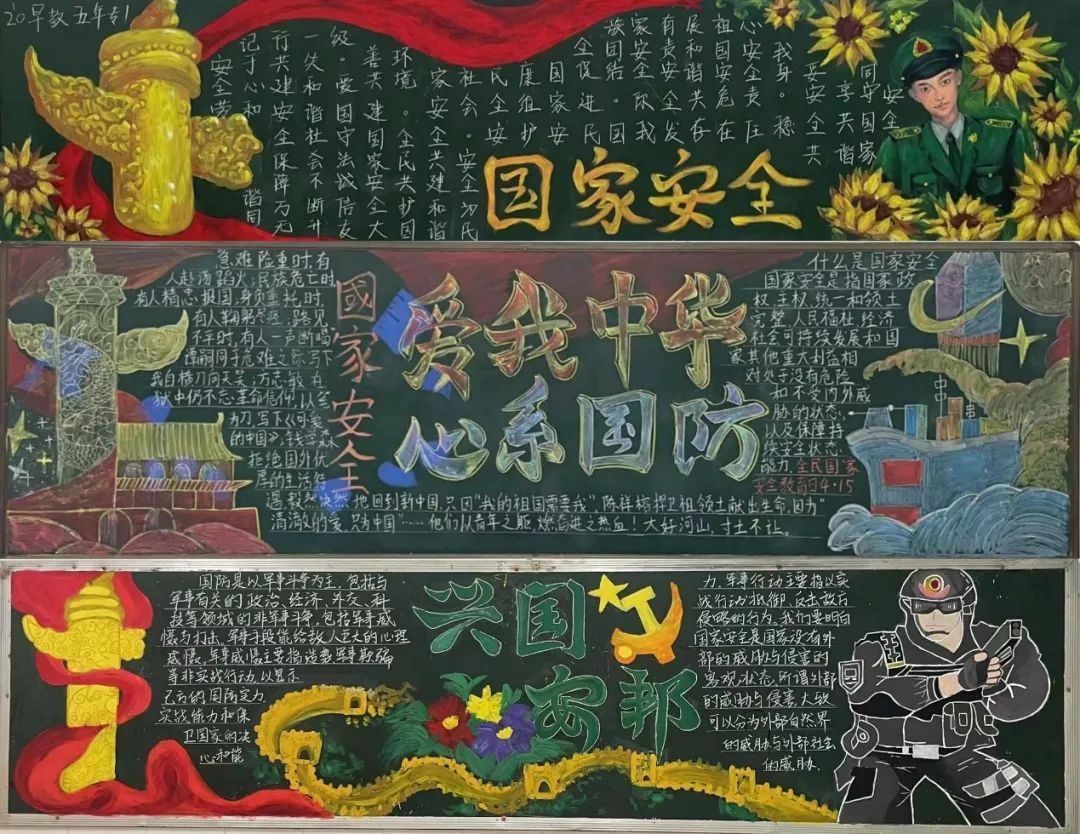 20早教五年专1
心安全责任
祖国安危在
展和谐共存
有责安全发
家安全你我
族团结。国
全促进民
国家安
康维护
民安
社会。安全为民
家安全共建和谐
环境。全民共护国
善共建国家安全大
级。爱国守法诚信友
一失和谐社会不断升
行共建安全保障万无
记于心和谐同
国家安全
急难险重时,有
人赴汤蹈火;民族危亡时
有人精忠报国;身负重托时,
有人鞠躬尽瘁;路见
不平时,有人一声断喝
谭嗣同于危难之际写下
我自横刀向天笑,方志敏在
狱中仍不忘革命信仰,以笔
为刀写下《可爱
的中国》,钱学森
拒绝国外优
厚的生活待
遇,毅然决然地回到新中国,只因“我的祖国需要我”,陈祥榕捍卫祖领土献出生命,因为“
清澈的爱,只为中国”……他们以青年之躯,燃奋进之热血!大好河山,寸土不让。
國家安全
爱我中华
心系国防
什么是国家安全
国家安全是指国家政
权、主权、统一和领土
完整、人民福祉、经济
社会可持续发展和国
家其他重大利益相
对处于没有危险
和不受内外威
胁的状态,
以及保障持
续安全状态
能力.全民国家
安全教育日4·15
国防是以军事斗争为主,包括与
军事有关的政治、经济、外交、科
技等领域的非军事斗争,包括军事威
慑与打击,军事手段能给敌人巨大的心理
威慑,军事威慑主要指造势军事欺骗
等非实战行动,以显示
己方的国防实力
实战能力和保
卫国家的决
心和能
兴国
安邦
力,军事行动主要指以实
战行动抵御、反击敌方
侵略的行为,我们要明白
国家安全是国家没有外
部的威胁与侵害的
客观状态,所谓外部
的威胁与侵害大致
可以分为外部自然界
的威胁与外部社会
的威胁.